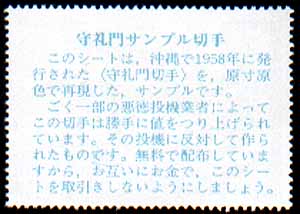 守礼門サンプル切手
このシートは，沖縄で1958年に発
行された〈守礼門切手〉を，原寸原
色で再現した，サンプルです。
ごく一部の悪徳投機業者によって
この切手は勝手に値をつり上げられ
ています。その投機に反対して作ら
れたものです。無料で配布していま
すから，お互いにお金で，このシー
トを取引きしないようにしましょう。